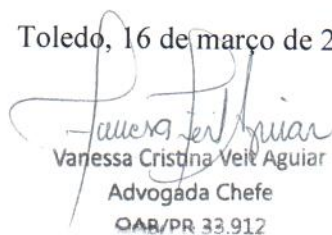 Toledo, 16 de março de 2
Vanessa Veit Aguiar
Vanessa Cristina Veit Aguiar
Advogada Chefe
OAB/PR 33.912